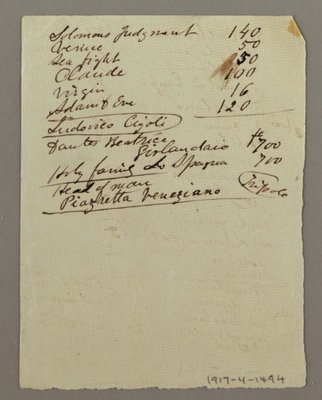 Solomons Judgment 140
Venice 50
Sea fight 50
Claude 100
Virgin 16
Adam & Eve 120
Ludovico Cigoli
Dantes Beatrice
Girlandaio 700
Holy family Lo Spagna 700
Head of man
Piazzetta Veneziano Tiepolo
1917-4-1494